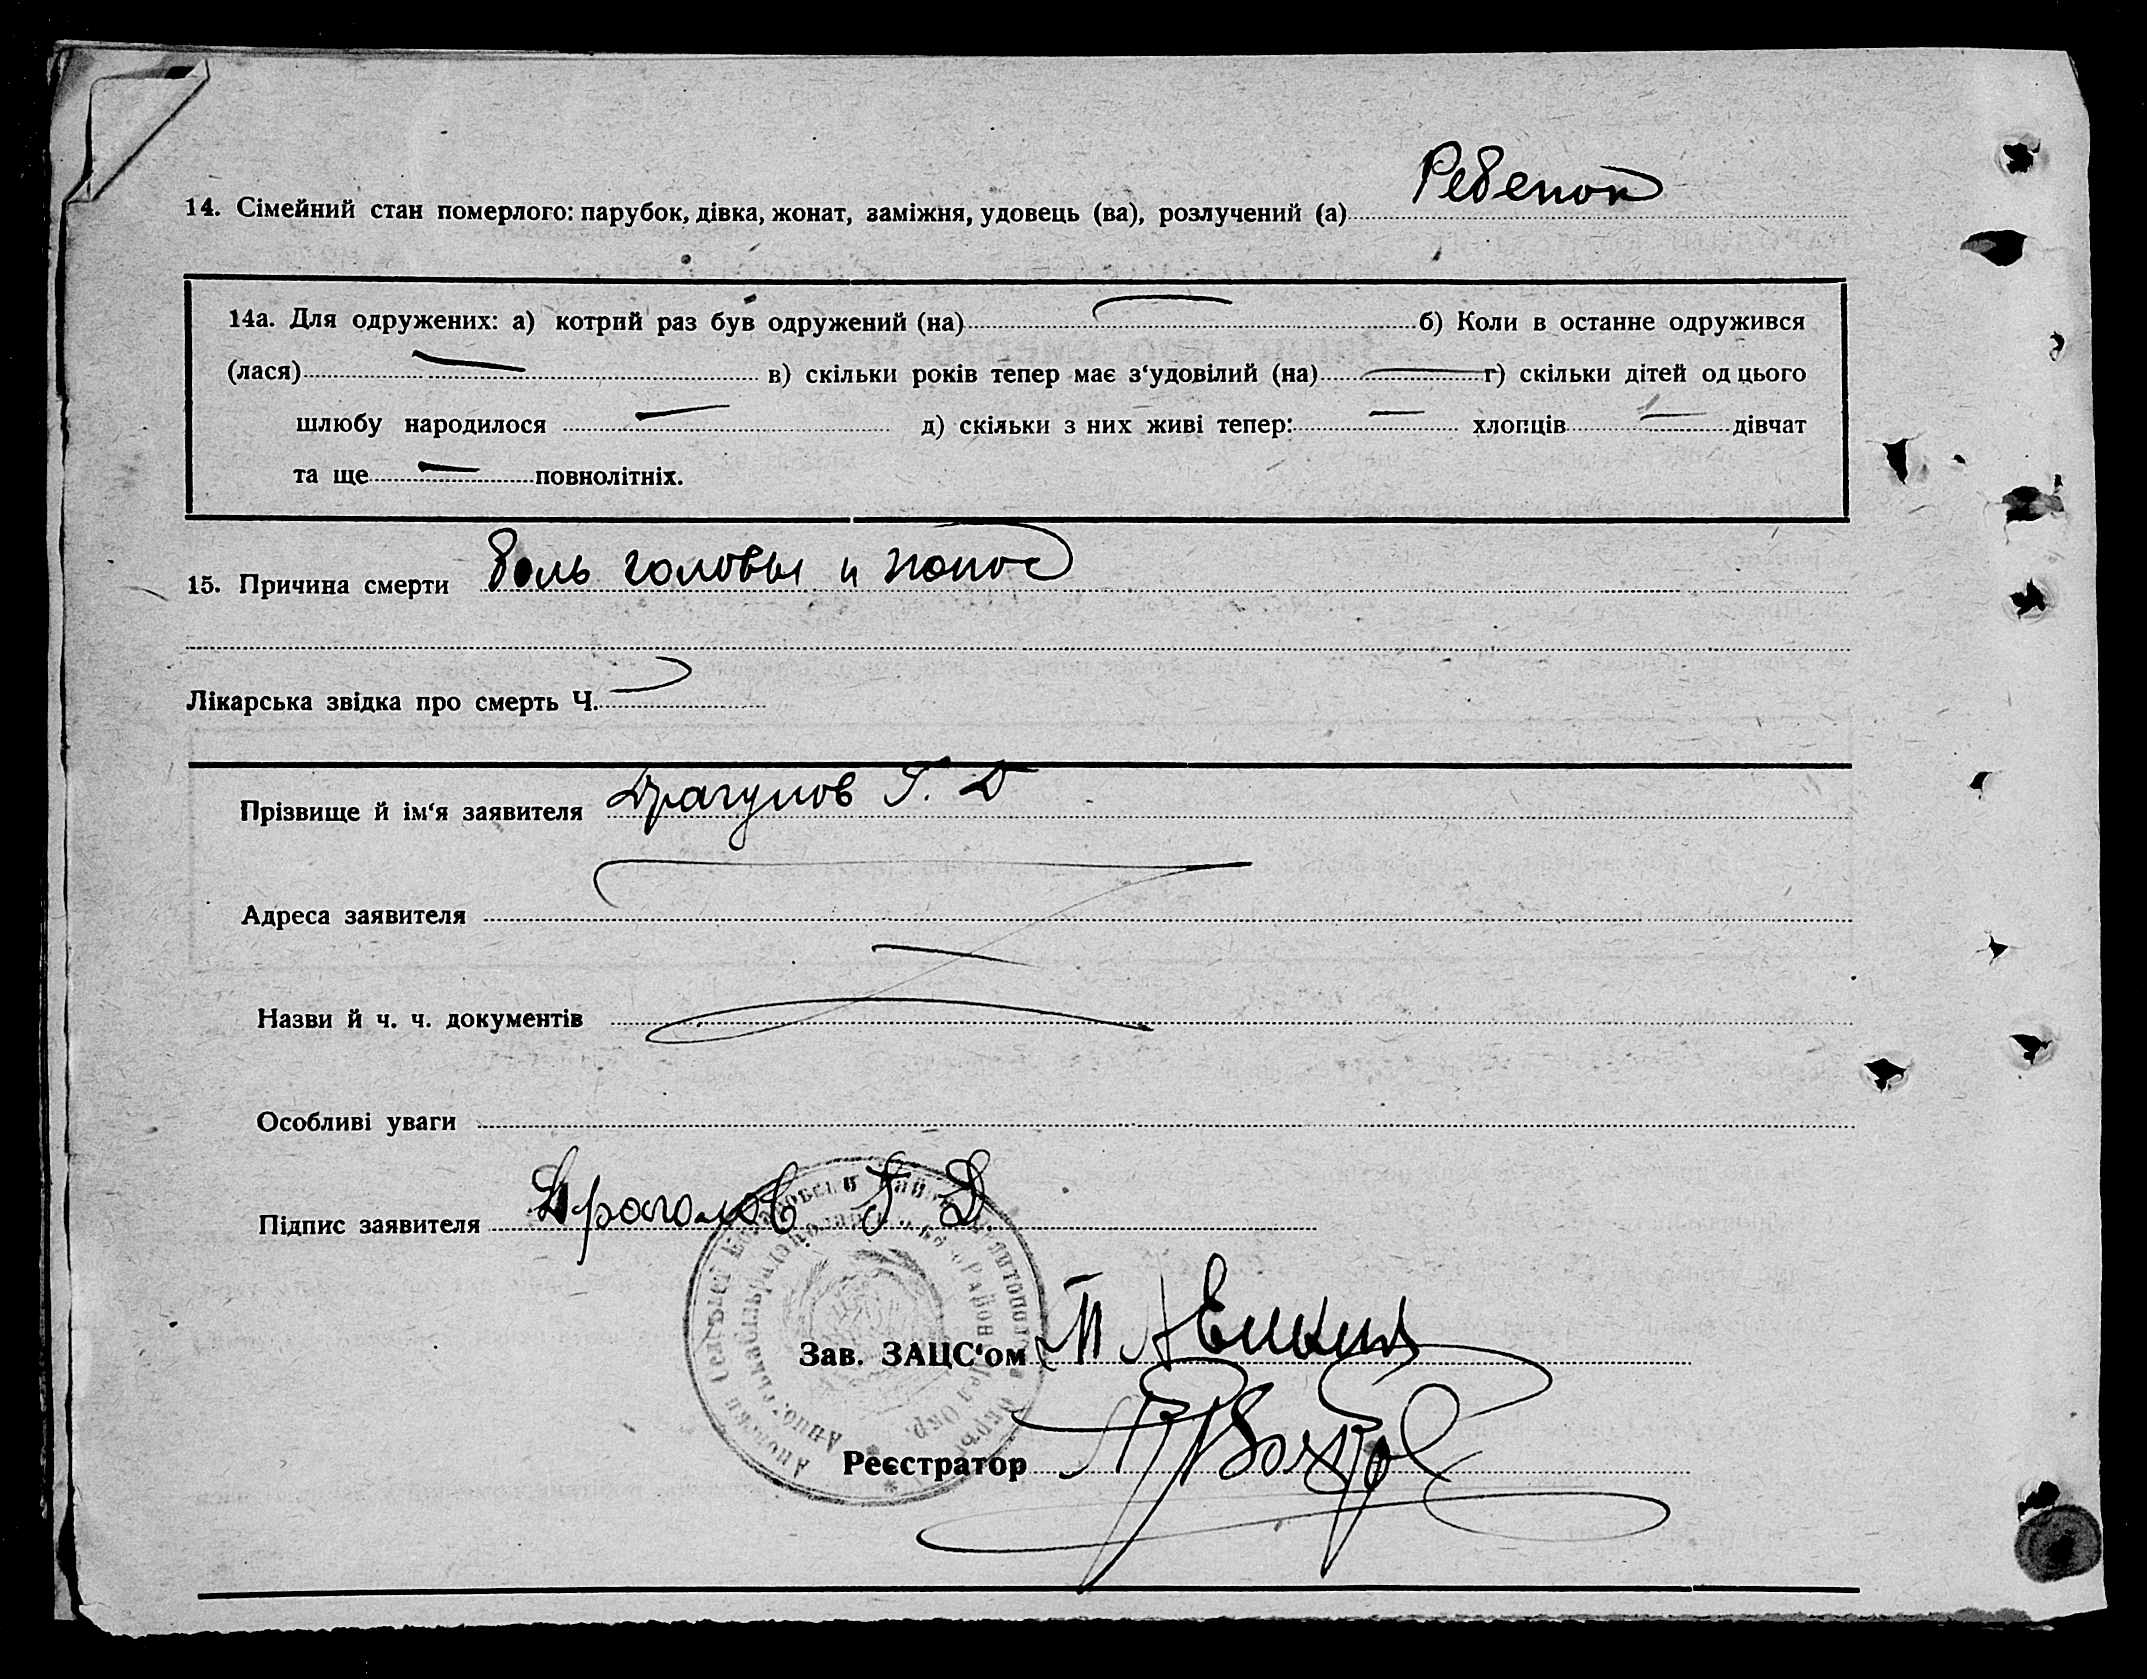 14. Сімейний стан померлого: парубок, дівка, жонат, заміжня, удовець (ва), розлучений (а) Ребенок
14а. Для одружених: а) котрий раз був одружений (на) — б) Коли в останне одружився
(лася) — в) скільки років тепер має з‘удовілий (на) — г) скільки дітей од цього
шлюбу народилося — д) скільки з них живі тепер: — хлопців — дівчат
та ще — повнолітніх.
15. Причина смерти боль головы и понос
Лікарська звідка про смерть Ч.
Прізвище й ім‘я заявителя Драгунов Г. Д
Адреса заявителя
Назви й ч. ч. документів
Особливі уваги
Підпис заявителя Драгонов Г Д
Зав. ЗАЦС‘ом
Реєстратор